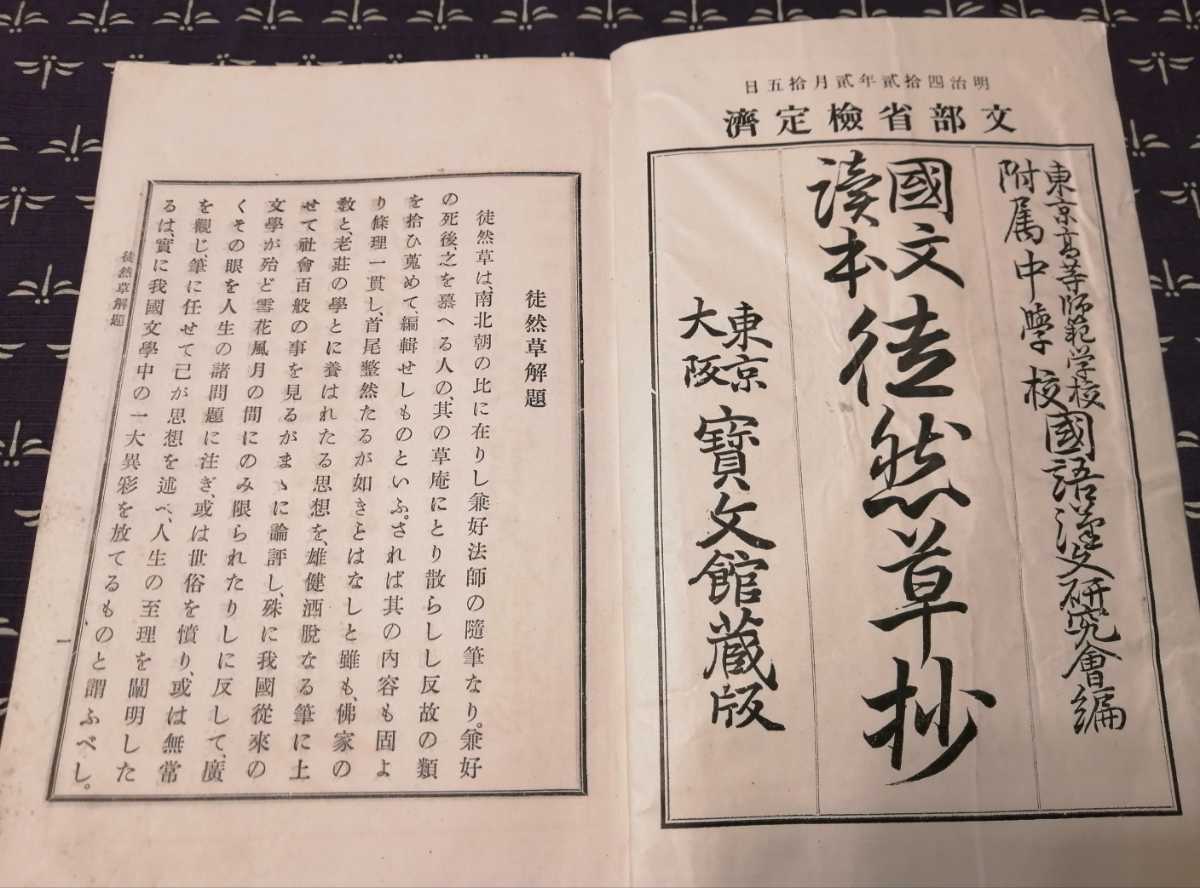 明治四拾貳年貳月拾五日
文部省檢定濟
東京高等師範学校
附属中學校
國語漢文研究會編
國文
讀本
徒然草抄
東京
大阪
寶文館藏版
徒然草解題
徒然草は、南北朝の比に在りし兼好法師の隨筆なり。兼好
の死後、之を慕へる人の、其の草庵にとり散らしし反故の類
を拾ひ蒐めて、編輯せしものといふ。されば其の內容も固よ
り條理一貫し、首尾整然たるが如きとはなしと雖も、佛家の
敎と、老莊の學とに養はれたる思想を、雄健洒脫なる筆に上
せて社會百般の事を見るがまゝに論評し、殊に我國從來の
文學が殆ど雪花風月の間にのみ限られたりしに反して、廣
くその眼を人生の諸問題に注ぎ、或は世俗を憤り、或は無常
を觀じ、筆に任せて己が思想を述べ、人生の至理を闡明した
るは、實に我國文學中の一大異彩を放てるものと謂ふべし。
徒然草解題
一